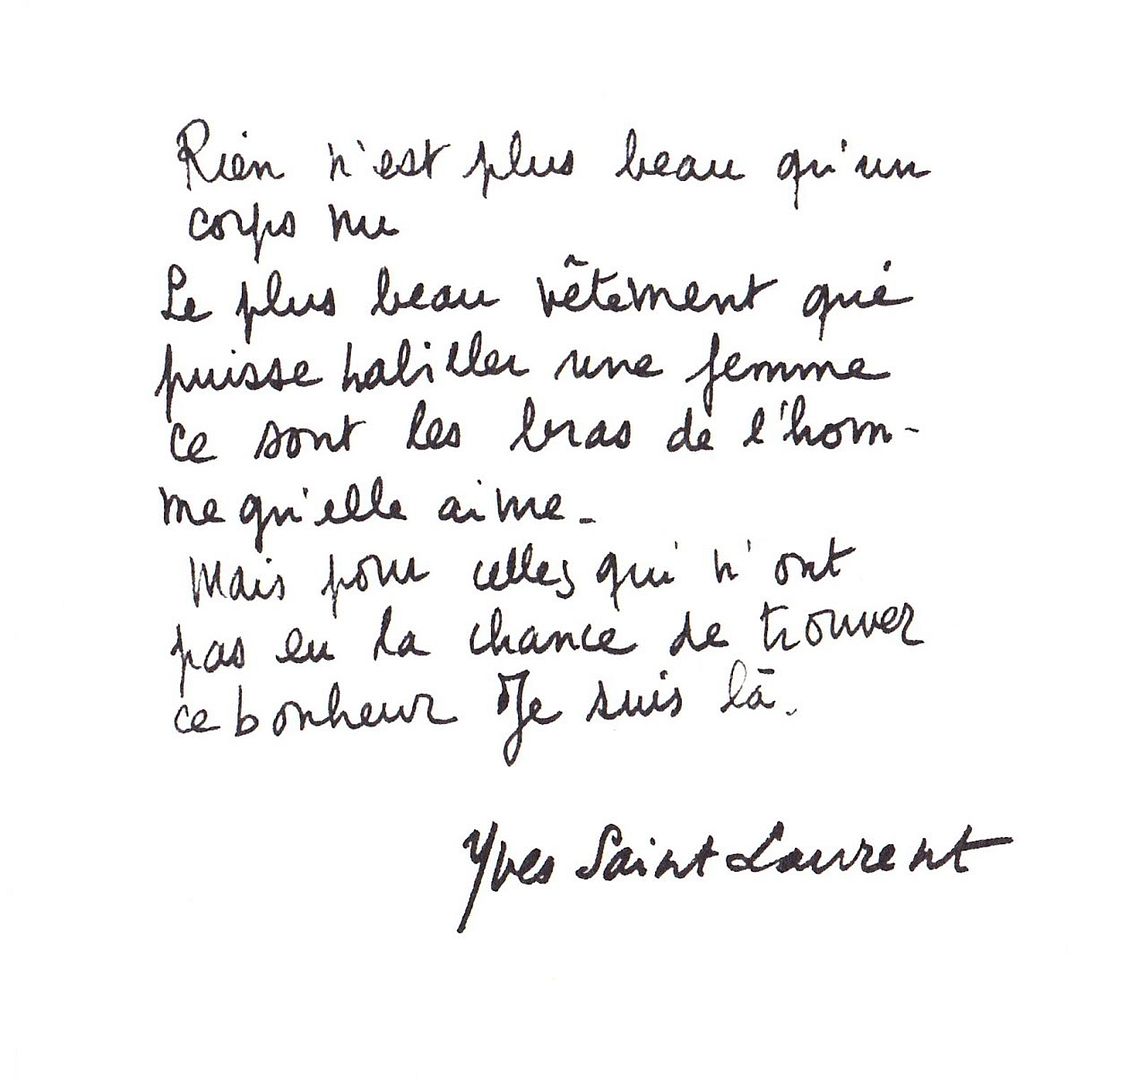 Rien n'est plus beau qu'un
corps nu
Le plus beau vêtement qui
puisse habiller une femme
ce sont les bras de l'hom-
me qu'elle aime.
Mais pour celles qui n'ont
pas eu la chance de trouver
ce bonheur Je suis là.
Yves Saint Laurent